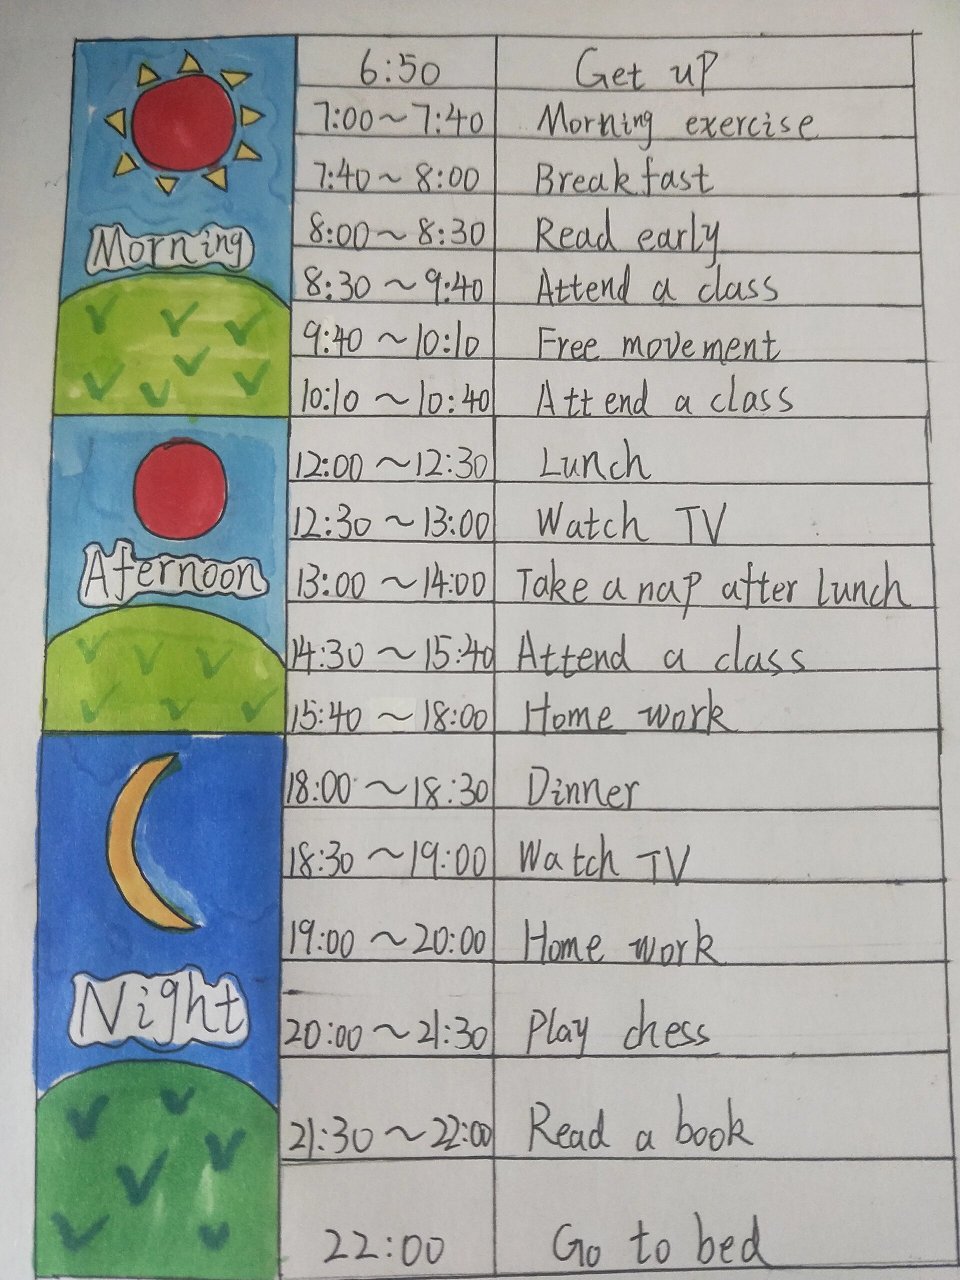 Morning
6:50 Get up
7:00~7:40 Morning exercise
7:40~8:00 Breakfast
8:00~8:30 Read early
8:30~9:40 Attend a class
9:40~10:10 Free movement
10:10~10:40 Attend a class
Afernoon
12:00~12:30 Lunch
12:30~13:00 Watch TV
13:00~14:00 Take a nap after lunch
14:30~15:40 Attend a class
15:40~18:00 Home work
Night
18:00~18:30 Dinner
18:30~19:00 Watch TV
19:00~20:00 Home work
20:00~21:30 Play chess
21:30~22:00 Read a book
22:00 Go to bed